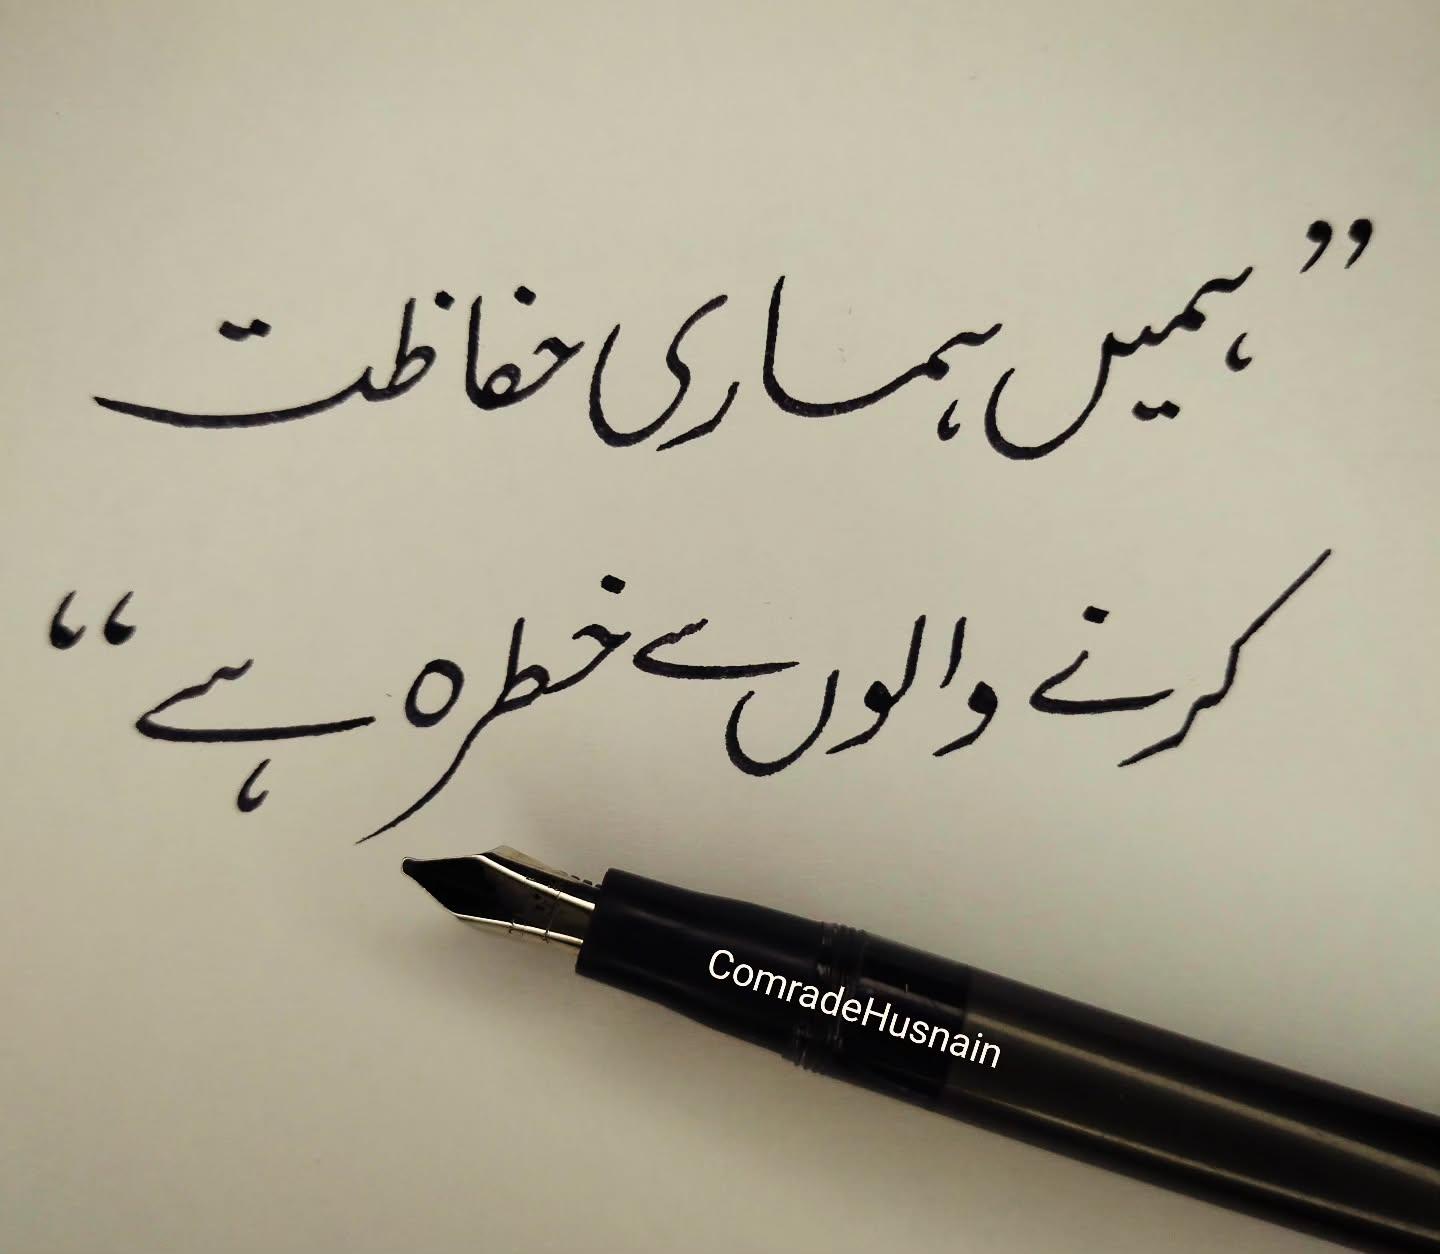 ”ہمیں ہماری حفاظت
کرنے والوں سے خطرہ ہے“
ComradeHusnain